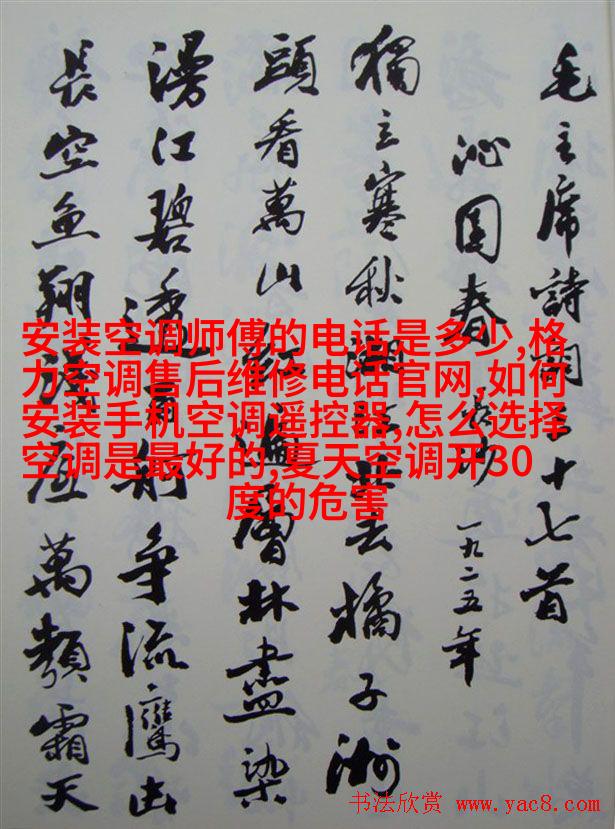 毛主席詩詞三十七首
沁園春 長沙 一九二五年
獨立寒秋湘江北去橘子洲
頭看萬山紅遍層林盡染
漫江碧透百舸争流鷹击
長空鱼翔浅底萬類霜天
安装空调师傅的电话是多少,格
力空调售后维修电话官网,如何
安装手机空调遥控器,怎么选择
空调是最好的,夏天空调开30
度的危害
书法欣赏 www.yac8.com